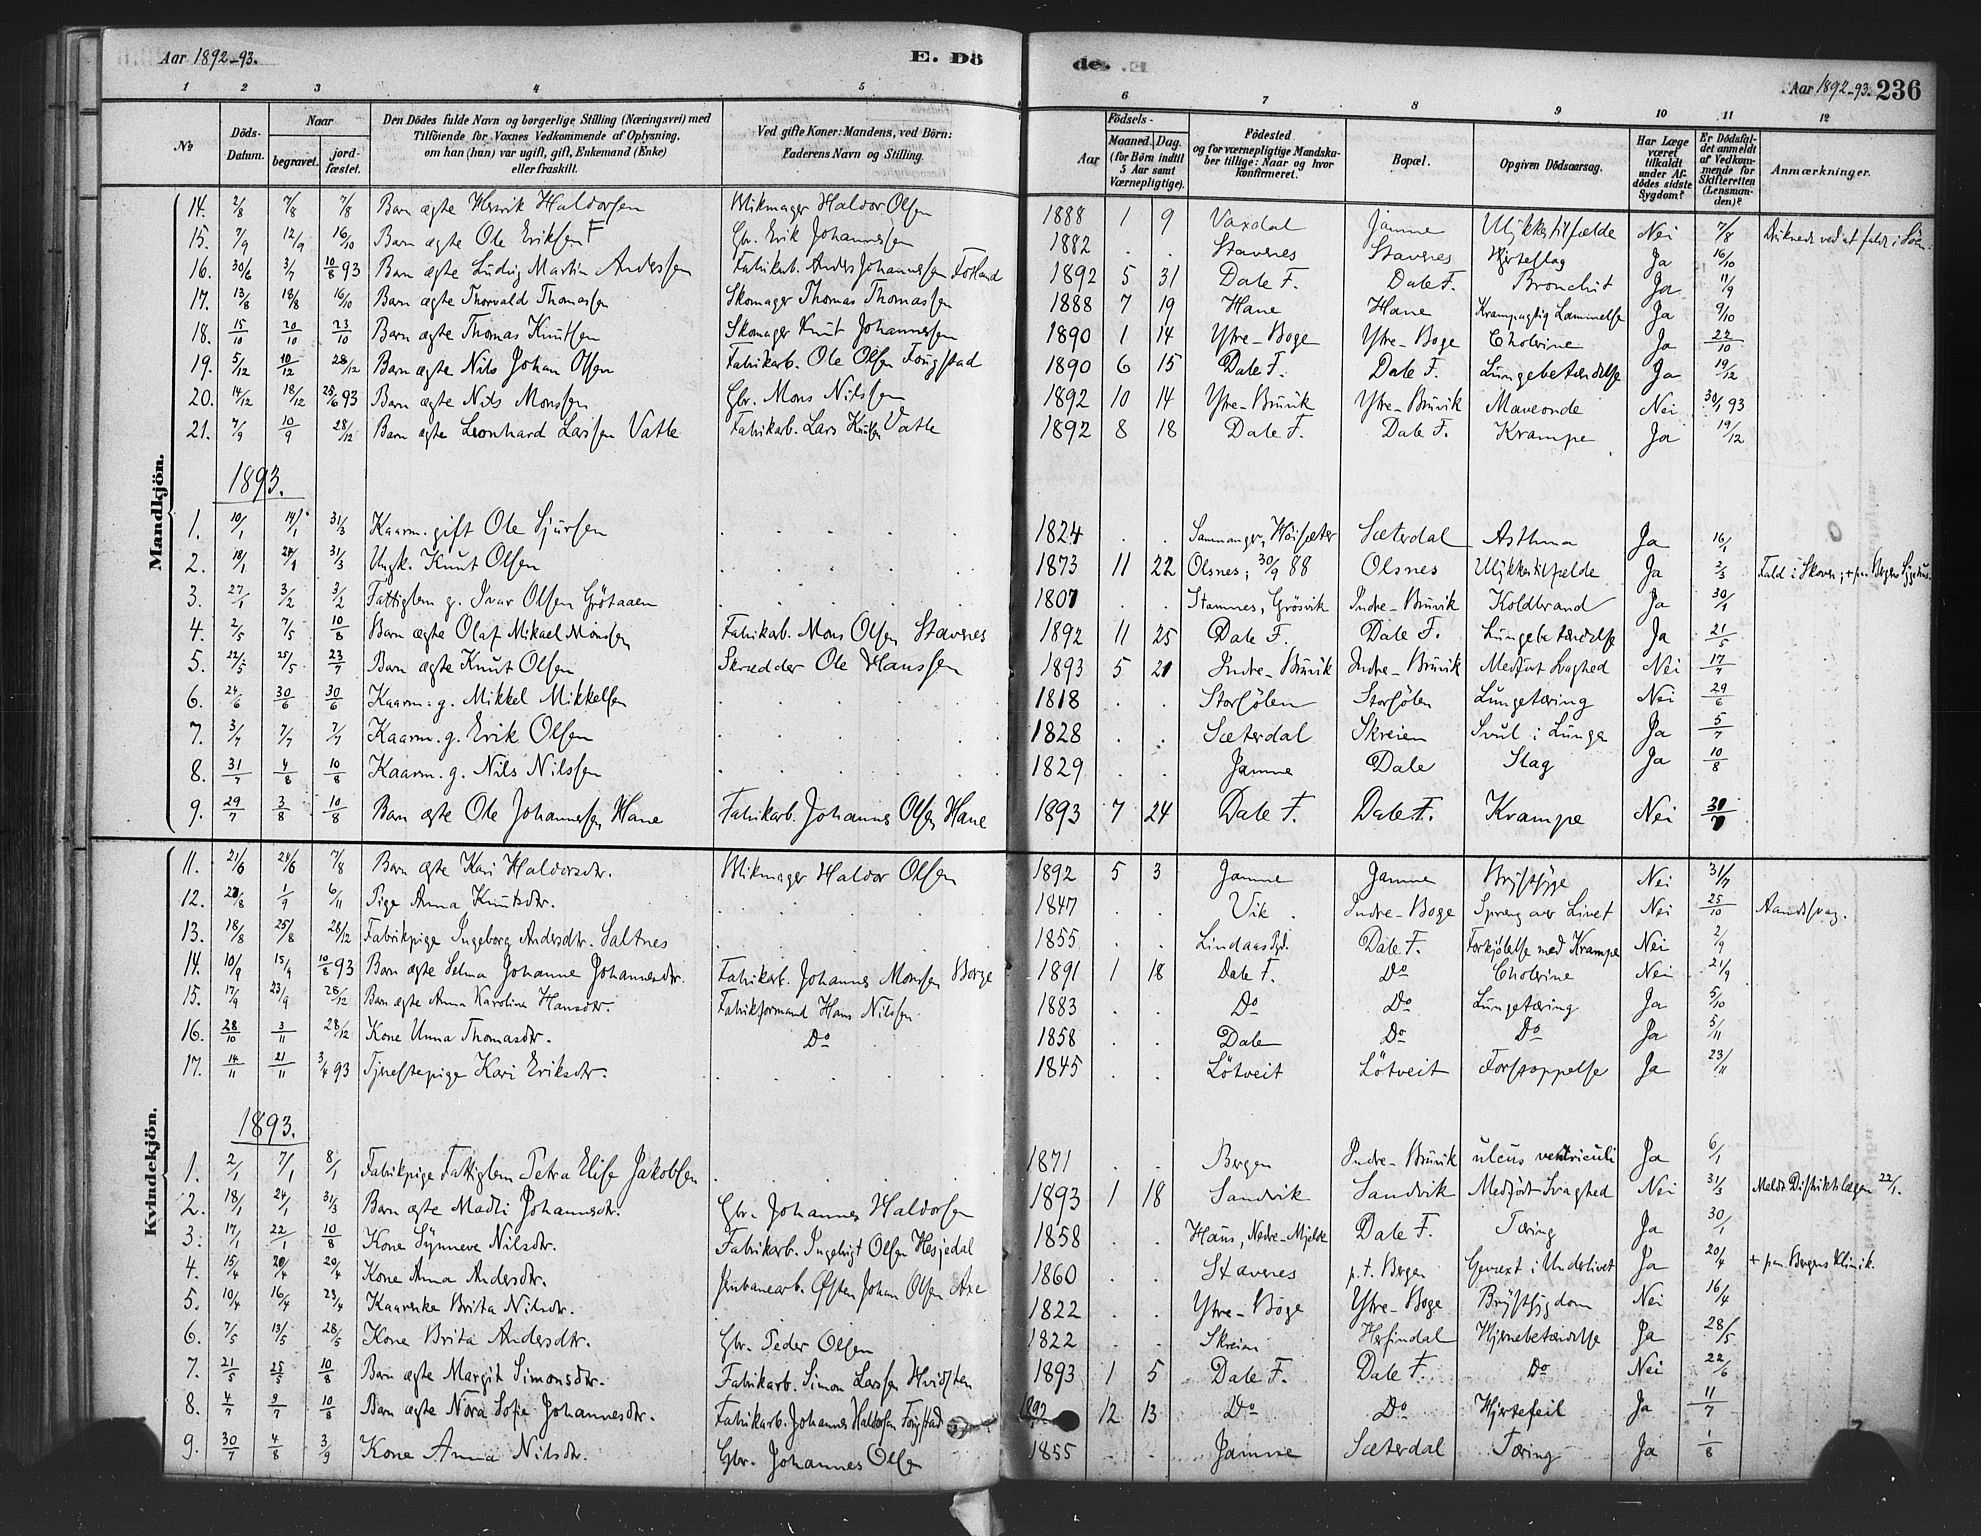 Aar 1892-93. E. Dö de. Aar 1892-93. 236
1 2 3 4 5 6 7 8 9 10 11 12
No
Döds-Datum.
Naar begravet. jordfæstet.
Den Dödes fulde Navn og borgerlige Stilling (Næringsvei) med Tilföiende for Voxnes Vedkommende af Oplysning. om han (hun) var ugift, gift, Enkemand (Enke) eller fraskilt.
Ved gifte Koner: Mandens, ved Börn: Faderens Navn og Stilling.
Födsels- Aar Maaned. Dag. (for Börn indtil 5 Aar samt Værnepligtige).
Födested og for værnepligtige Mandskaber tillige: Naar og hvor Konfirmeret.
Bopæl.
Opgiven Dödsaarsag.
Har Læge været tilkaldt under Afdödes sidste Sygdom?
Er Dödsfaldet anmeldt af Vedkommende for Skifteretten (Lensmanden)?
Anmærkninger.
Mandkjön.
14. 2/8 7/8 7/8 Barn ægte Henrik Haldorsen Blikmager Haldor Olsen 1888 1 9 Vaxdal Jamne Ulykkestilfælde Nei 7/8 Druknede ved at falde i Söen.
15. 7/9 12/9 16/10 Barn ægte Ole Eriksen F Gbr. Erik Johannessen 1882 . . Stavenes Stavenes Hjerteslag Ja 16/10
16. 30/6 3/7 10/8 93 Barn ægte Ludvig Martin Anderssen Fabrikarb. Anders Johannessen Fosland 1892 5 31 Dale F. Dale F. Bronchit Ja 11/9
17. 13/8 18/8 16/10 Barn ægte Thorvald Thomassen Skomager Thomas Thomassen 1888 7 19 Hane Hane Krampagtig Lammelse Ja 9/10
18. 15/10 20/10 23/10 Barn ægte Thomas Knutsen Skomager Knut Johannessen 1890 1 14 Ytre-Boge Ytre-Boge Cholerine Ja 22/10
19. 5/12 10/12 28/12 Barn ægte Nils Johan Olsen Fabrikarb. Ole Olsen Fougstad 1890 6 15 Dale F. Dale F. Lungebetændelse Ja 19/12
20. 14/12 18/12 25/6 93 Barn ægte Nils Monsen Gbr. Mons Nilssen 1892 10 14 Ytre-Bruvik Ytre-Bruvik Maveonde Nei 30/1 93
21. 7/9 10/9 28/12 Barn ægte Leonhard Larsen Vatle Fabrikarb. Lars Knutsen Vatle 1892 8 18 Dale F. Dale F. Krampe Ja 19/12
1893.
1. 10/1 14/1 31/3 Kaarm. gift Ole Sjursen . . . . 1824 . . Samnanger, Höisæter Sæterdal Asthma Ja 16/1
2. 18/1 24/1 31/3 Ungk. Knut Olsen . . . . 1873 11 22 Olsnes; 30/9 88 Olsnes Ulykkestilfælde Ja 2/3 Fald i Skoven; + paa Bergens Sygehus.
3. 27/1 3/2 3/2 Fattiglem g. Ivar Olsen Götaaen . . . . 1807 . . Stamnes, Grösvik Indre-Bruvik Koldbrand Ja 30/1
4. 2/5 7/5 10/8 Barn ægte Olaf Mikael Monsen Fabrikarb. Mons Olsen Stavenes 1892 11 25 Dale F. Dale F. Lungebetændelse Ja 21/5
5. 22/5 25/5 23/7 Barn ægte Knut Olsen Skrædder Ole Hanssen 1893 5 21 Indre-Bruvik Indre-Bruvik Medfödt Svaghed Nei 17/7
6. 24/6 30/6 30/6 Kaarm. g. Mikkel Mikkelsen . . . . 1818 . . Storsölen Storsölen Lungetæring Nei 29/6
7. 3/7 7/7 7/7 Kaarm. g. Erik Olsen . . . . 1828 . . Sæterdal Skreien Svul i Lunge Ja 5/7
8. 31/7 4/8 10/8 Kaarm. g. Nils Nilssen . . . . 1829 . . Jamne Dale Slag Ja 10/8
9. 29/7 3/8 10/8 Barn ægte Ole Johannessen Hane Fabrikarb. Johannes Olsen Hane 1893 7 24 Dale F. Dale F. Krampe Nei 31/7
Kvindekjön.
11. 21/6 24/6 7/8 Barn ægte Kari Haldorsdtr. Blikmager Haldor Olsen 1892 5 3 Jamne Jamne Brystsyge Nei 31/7
12. 28/8 1/9 6/11 Pige Anna Knutsdtr. . . . . 1847 . . Vik Indre-Boge Sprang over Livet Nei 25/10 Aandssvag.
13. 18/8 25/8 28/12 Fabrikpige Ingeborg Andersdtr. Saltnes . . . . 1855 . . Lindaas Pgd. Dale F. Forkjölelse med Krampe Nei 2/9
14. 10/9 15/9 10/8 93 Barn ægte Selma Johanne Johannesdtr. Fabrikarb. Johannes Monssen Borge 1891 1 18 Dale F. Do Cholerine Nei 21/9
15. 17/9 23/9 28/12 Barn ægte Anna Karolina Hansdtr. Fabrikformand Hans Nilssen 1883 . . Do Do Lungetæring Ja 5/10
16. 28/10 3/11 28/12 Kone Unna Thomasdtr. Do 1858 . . Dale Do Do Ja 5/11
17. 14/11 21/11 3/4 93 Tjenestepige Kari Eriksdtr. . . . . 1845 . . Lötveit Lötveit Forstoppelse Ja 23/11
1893.
1. 2/1 7/1 8/1 Fabrikpige Fattiglem Petra Elise Jakobsen . . . . 1871 . . Bergen Indre-Bruvik ulcus ventriculi Ja 6/1
2. 18/1 24/1 31/3 Barn ægte Madli Johannesdtr. Gbr. Johannes Haldorsen 1893 1 18 Sandvik Sandvik Medfödt Svaghed Nei 31/3 Meldt Distriktslægen 22/1.
3. 17/1 22/1 10/8 Kone Synneve Nilsdtr. Fabrikarb. Ingebrigt Olsen Hesjedal 1858 . . Haus, Nedre-Mjelde Dale F. Tæring Ja 30/1
4. 15/4 20/4 20/4 Kone Anna Andersdtr. Jernbanearb. Östen Johan Olsen Axe 1860 . . Stavenes p. t. Bergen Gevæxt i Underlivet Ja 20/4 + paa Bergens Klinik.
5. 10/4 16/4 23/4 Kaarenke Brita Nilsdtr. . 1822 . . Ytre-Boge Ytre-Boge Brystsygdom Nei 16/4
6. 7/5 13/5 28/5 Kone Brita Andersdtr. Gbr. Peder Olsen 1822 . . Skreien Herfindal Hjernebetændelse Ja 28/5
7. 21/5 25/5 10/8 Barn ægte Margit Simonsdtr. Fabrikarb. Simon Larssen Hvidsten 1893 1 5 Dale F. Dale F. Do Nei 22/6
8. 4/7 9/7 10/8 Barn ægte Nora Sofie Johannesdtr. Fabrikarb. Johannes Haldorsen Fougstad 1892 12 13 Do Do Hjertefeil Ja 11/7
9. 30/7 4/8 3/9 Kone Anna Nilsdtr. Gbr. Johannes Olsen 1855 . . Jamne Sæterdal Tæring Ja 1/8